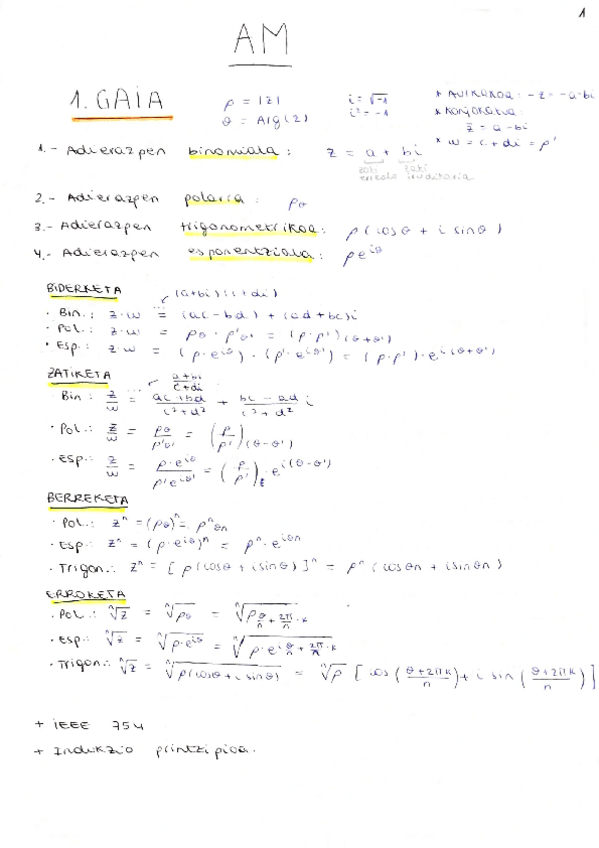 1
AM
1. GAIA
ρ = |z|
θ = Arg(z)
i = √-1
i² = -1
* Aurkakoa: -z = -a-bi
* Konjokatua:
z̄ = a - bi
* w = c + di = ρ'
1.- Adierazpen binomiala: z = a + bi
zati erreala
zati irudikaria
2.- Adierazpen polarra: ρθ
3.- Adierazpen trigonometrikoa: ρ(cosθ + i sinθ)
4.- Adierazpen esponentziala: ρe^iθ
BIDERKETA
(a+bi)·(c+di)
· Bin.: z·w = (ac-bd) + (ad+bc)i
· Pol.: z·w = ρθ · ρ'θ' = (ρ·ρ')(θ+θ')
· Esp.: z·w = (ρ·e^iθ)·(ρ'·e^iθ') = (ρ·ρ')·e^i(θ+θ')
ZATIKETA
(a+bi)/(c+di)
· Bin: z/w = (ac+bd)/(c²+d²) + (bc-ad)/(c²+d²) i
· Pol.: z/w = ρθ/ρ'θ' = (ρ/ρ')(θ-θ')
· Esp.: z/w = ρ·e^iθ/ρ'e^iθ' = (ρ/ρ')·e^i(θ-θ')
BERREKETA
· Pol.: zⁿ = (ρθ)ⁿ = ρⁿθn
· Esp.: zⁿ = (ρ·e^iθ)ⁿ = ρⁿ·e^iθn
· Trigon.: zⁿ = [ρ(cosθ + i sinθ)]ⁿ = ρⁿ(cosθn + i sinθn)
ERROKETA
· Pol.: ⁿ√z = ⁿ√ρθ = ⁿ√ρ θ/n + 2π/n·k
· Esp.: ⁿ√z = ⁿ√(ρ·e^iθ) = ⁿ√(ρ·e^i θ/n + 2π/n·k)
· Trigon.: ⁿ√z = ⁿ√(ρ(cosθ + i sinθ)) = ⁿ√ρ [cos((θ+2πk)/n) + i sin((θ+2πk)/n)]
+ IEEE 754
+ Indukzio printzipioa.